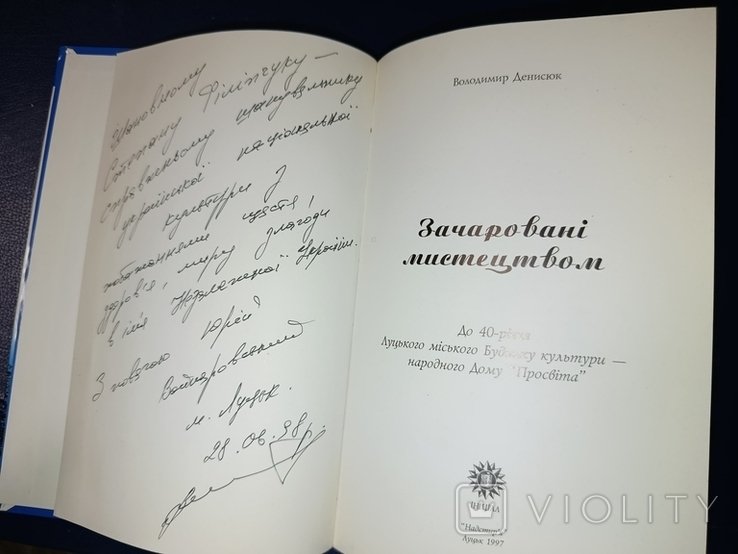 Шановному
Степану Філіпчуку —
справжньому шанувальнику
української національної
культури з
побажаннями щастя,
здоров'я, миру, злагоди
в ім'я Незалежної України.
З повагою Юрій
м. Луцьк.
28.06.98р.
Володимир Денисюк
Зачаровані
мистецтвом
До 40-річчя
Луцького міського Будинку культури —
народного Дому "Просвіта"
"Надстир'я"
Луцьк 1997
VIOLITY